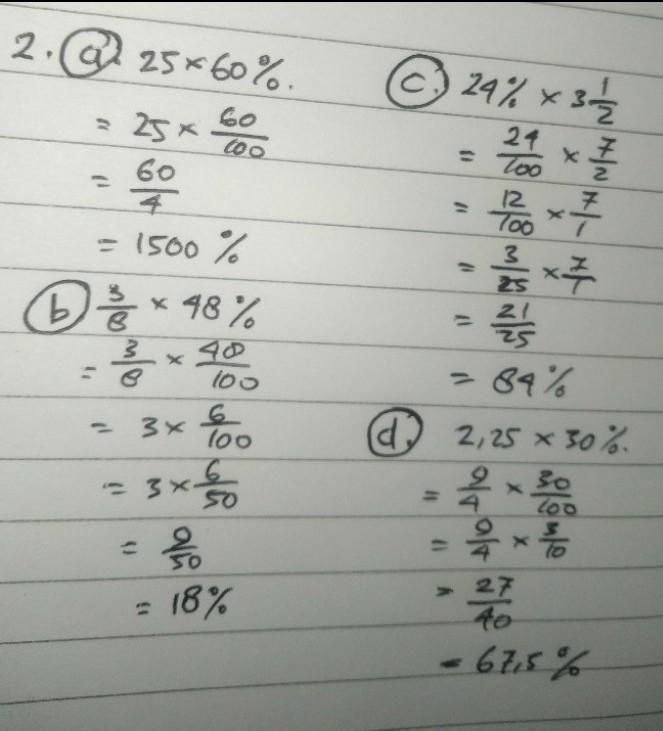 2. a. 25 × 60%.
= 25 × 60/100
= 60/4
= 1500 %
b 3/8 × 48 %
= 3/8 × 48/100
= 3 × 6/100
= 3 × 6/50
= 9/50
= 18%
c. 24% × 3 1/2
= 24/100 × 7/2
= 12/100 × 7/1
= 3/25 × 7/1
= 21/25
= 84%
d. 2,25 × 30%.
= 9/4 × 30/100
= 9/4 × 3/10
= 27/40
= 67,5 %